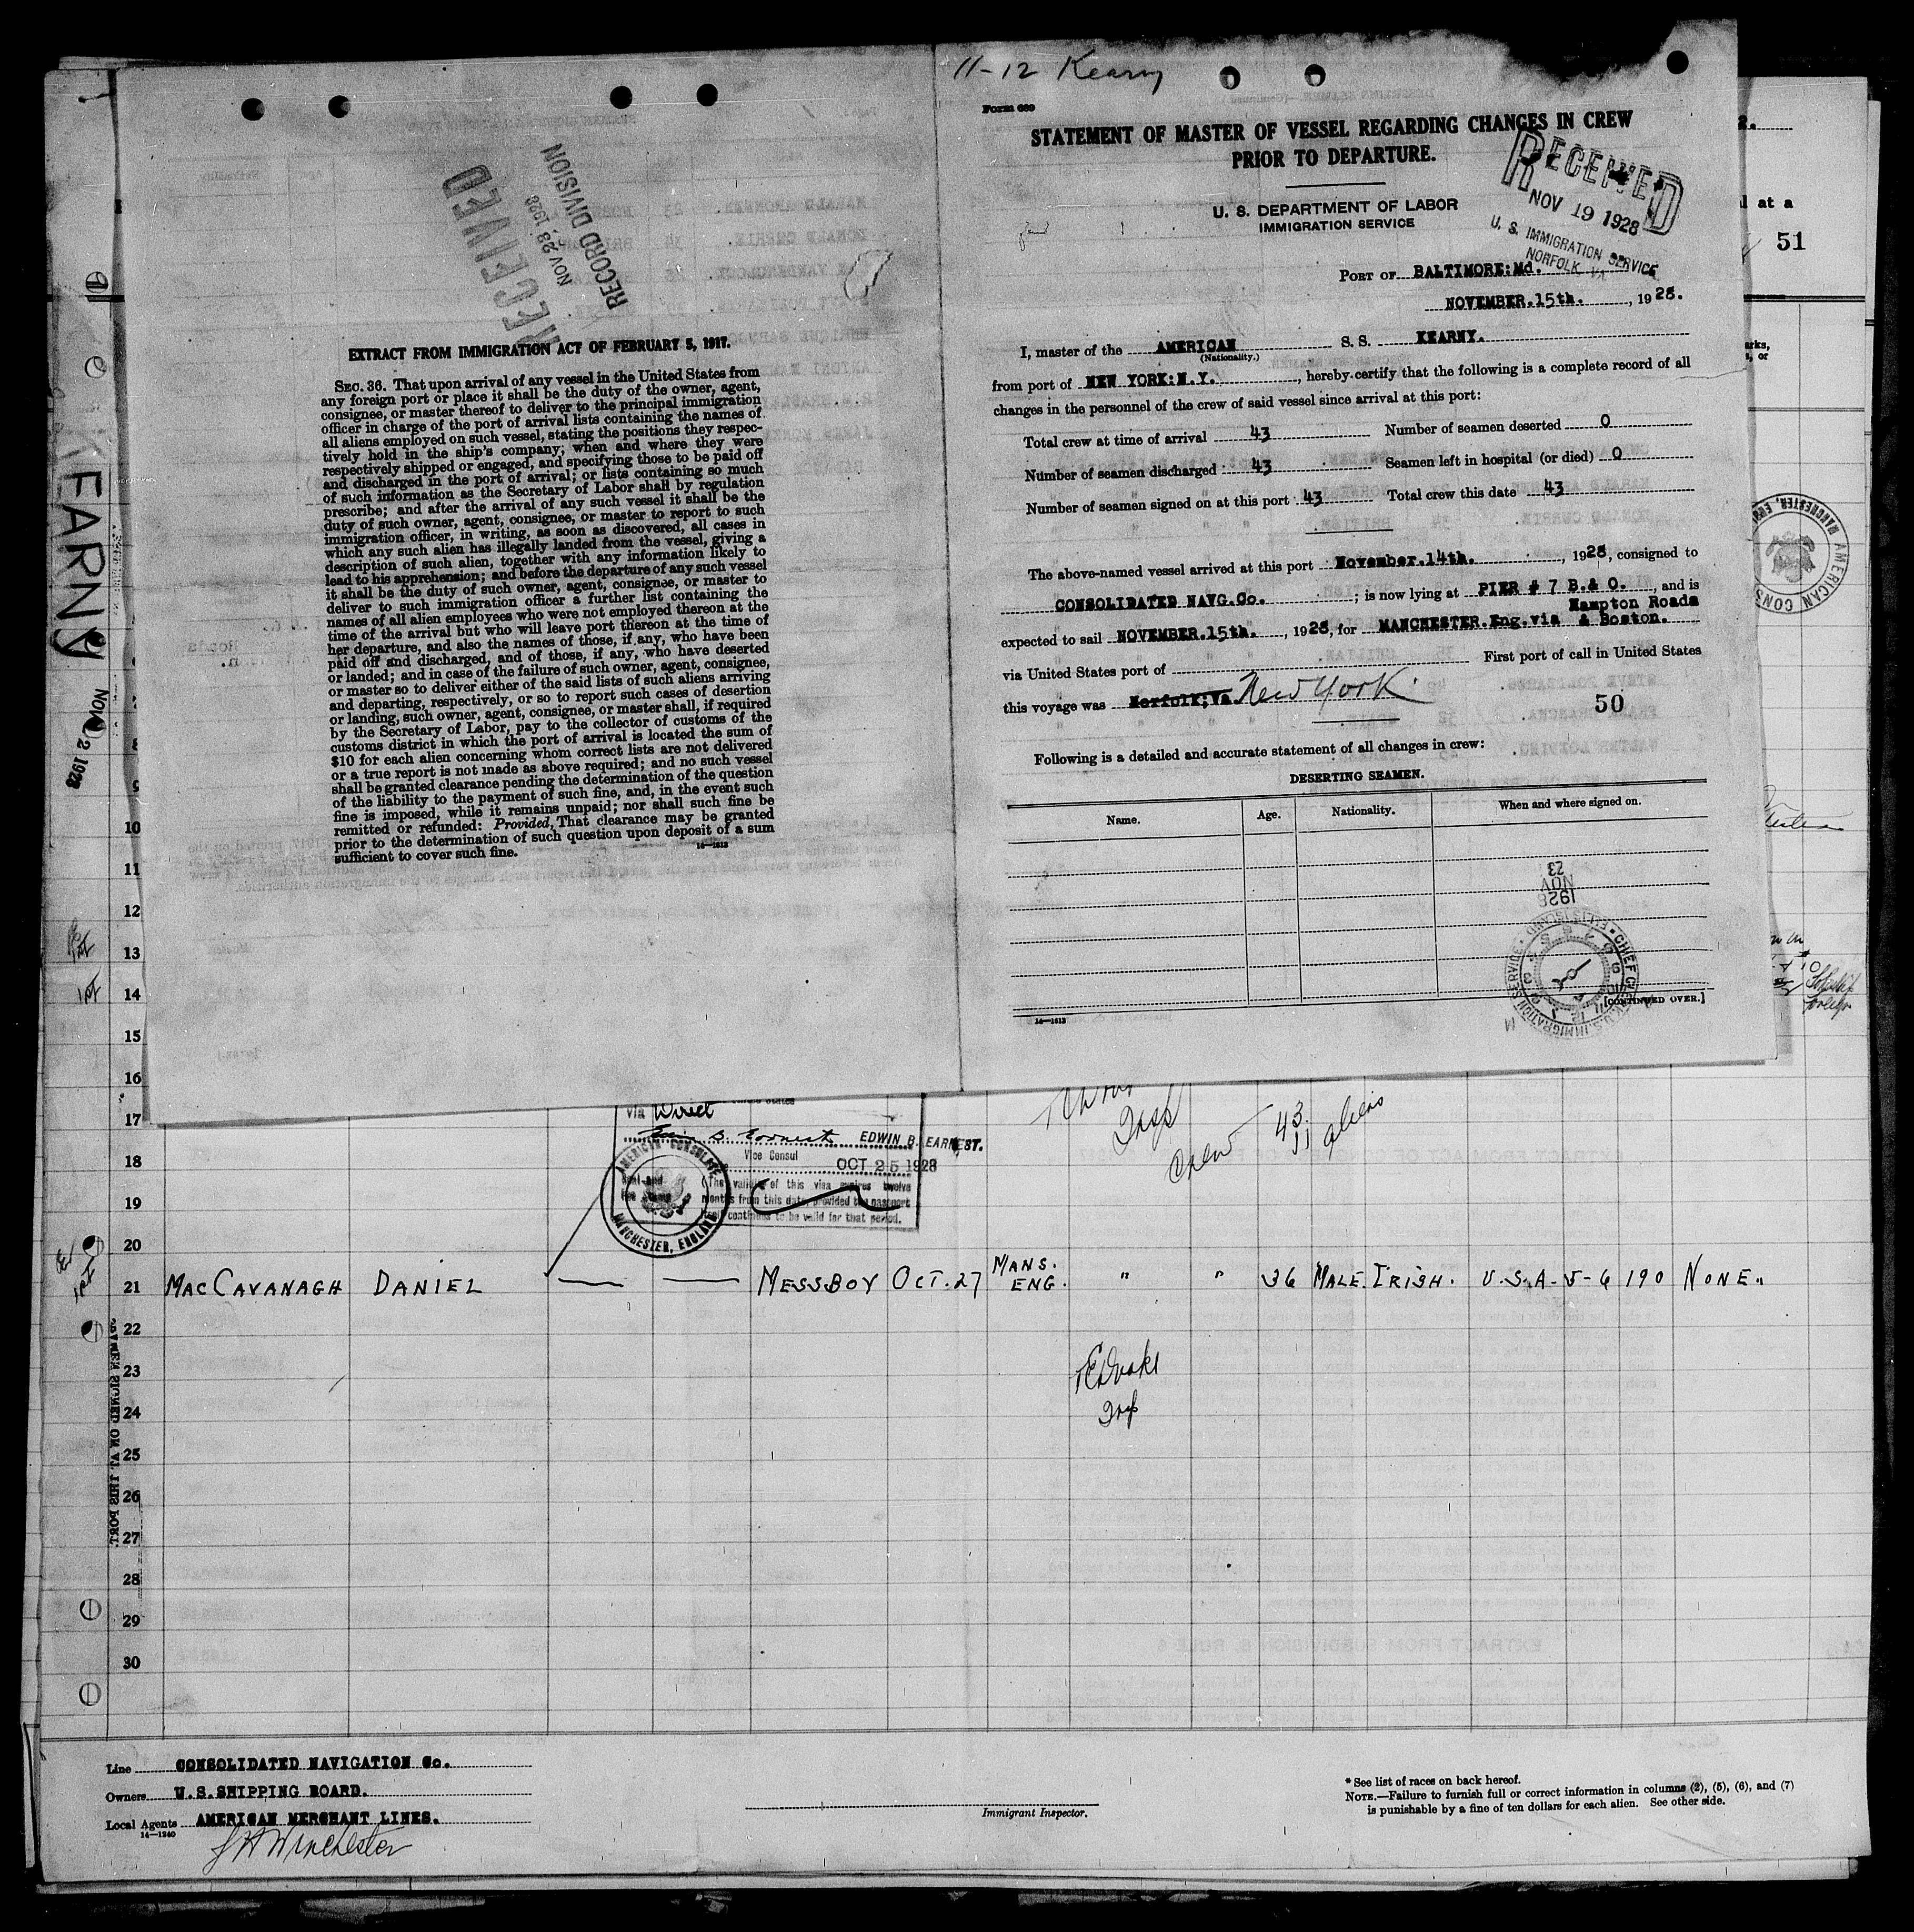 11-12 Kearny
Form 689
STATEMENT OF MASTER OF VESSEL REGARDING CHANGES IN CREW
PRIOR TO DEPARTURE.
RECEIVED
NOV 19 1928
U. S. IMMIGRATION SERVICE
NORFOLK, VA
U. S. DEPARTMENT OF LABOR
IMMIGRATION SERVICE
PORT OF BALTIMORE:Md.
NOVEMBER.15th., 1928.
I, master of the AMERICAN S. S. KEARNY.
(Nationality.)
from port of NEW YORK:N.Y., hereby certify that the following is a complete record of all
changes in the personnel of the crew of said vessel since arrival at this port:
Total crew at time of arrival 43 Number of seamen deserted 0
Number of seamen discharged 43 Seamen left in hospital (or died) 0
Number of seamen signed on at this port 43 Total crew this date 43
The above-named vessel arrived at this port November.14th., 1928, consigned to
CONSOLIDATED NAVG.Co.; is now lying at PIER # 7 B.& O., and is
Hampton Roads
expected to sail NOVEMBER.15th., 1928, for MANCHESTER.Eng.via & Boston.
via United States port of First port of call in United States
this voyage was Norfolk;Va. New York
50
Following is a detailed and accurate statement of all changes in crew:
DESERTING SEAMEN.
Name. Age. Nationality. When and where signed on.
1928
NOV
23
[CONTINUED OVER.]
14—1613
RECEIVED
NOV 23 1928
RECORD DIVISION
EXTRACT FROM IMMIGRATION ACT OF FEBRUARY 5, 1917.
SEC. 36. That upon arrival of any vessel in the United States from
any foreign port or place it shall be the duty of the owner, agent,
consignee, or master thereof to deliver to the principal immigration
officer in charge of the port of arrival lists containing the names of
all aliens employed on such vessel, stating the positions they respec-
tively hold in the ship's company, when and where they were
respectively shipped or engaged, and specifying those to be paid off
and discharged in the port of arrival; or lists containing so much
of such information as the Secretary of Labor shall by regulation
prescribe; and after the arrival of any such vessel it shall be the
duty of such owner, agent, consignee, or master to report to such
immigration officer, in writing, as soon as discovered, all cases in
which any such alien has illegally landed from the vessel, giving a
description of such alien, together with any information likely to
lead to his apprehension; and before the departure of any such vessel
it shall be the duty of such owner, agent, consignee, or master to
deliver to such immigration officer a further list containing the
names of all alien employees who were not employed thereon at the
time of the arrival but who will leave port thereon at the time of
her departure, and also the names of those, if any, who have been
paid off and discharged, and of those, if any, who have deserted
or landed; and in case of the failure of such owner, agent, consignee,
or master so to deliver either of the said lists of such aliens arriving
and departing, respectively, or so to report such cases of desertion
or landing, such owner, agent, consignee, or master shall, if required
by the Secretary of Labor, pay to the collector of customs of the
customs district in which the port of arrival is located the sum of
$10 for each alien concerning whom correct lists are not delivered
or a true report is not made as above required; and no such vessel
shall be granted clearance pending the determination of the question
of the liability to the payment of such fine, and, in the event such
fine is imposed, while it remains unpaid; nor shall such fine be
remitted or refunded: Provided, That clearance may be granted
prior to the determination of such question upon deposit of a sum
sufficient to cover such fine.
14—1613
EARNY
NOV 2 1928
2.
51
10
11
12
13
14
15
16
17
18
19
20
via Direct
EDWIN B. EARNEST.
Vice Consul
OCT 25 1928
AMERICAN CONSULATE
MANCHESTER, ENGLAND
The validity of this visa expires twelve
months from this date, provided the passport
continues to be valid for that period.
Insp
Crew 43
11 aliens
21 MACCAVANAGH DANIEL — — MESSBOY OCT. 27 MANS. ENG. " " 36 MALE. IRISH. U.S.A- 5-6 190 NONE..
22
23
24
25
26
27
28
29
30
Insp
Line CONSOLIDATED NAVIGATION Co.
Owners U.S.SHIPPING BOARD.
Local Agents AMERICAN MERCHANT LINES.
14—1240
J H Winchester
Immigrant Inspector.
* See list of races on back hereof.
NOTE.—Failure to furnish full or correct information in columns (2), (5), (6), and (7)
is punishable by a fine of ten dollars for each alien. See other side.